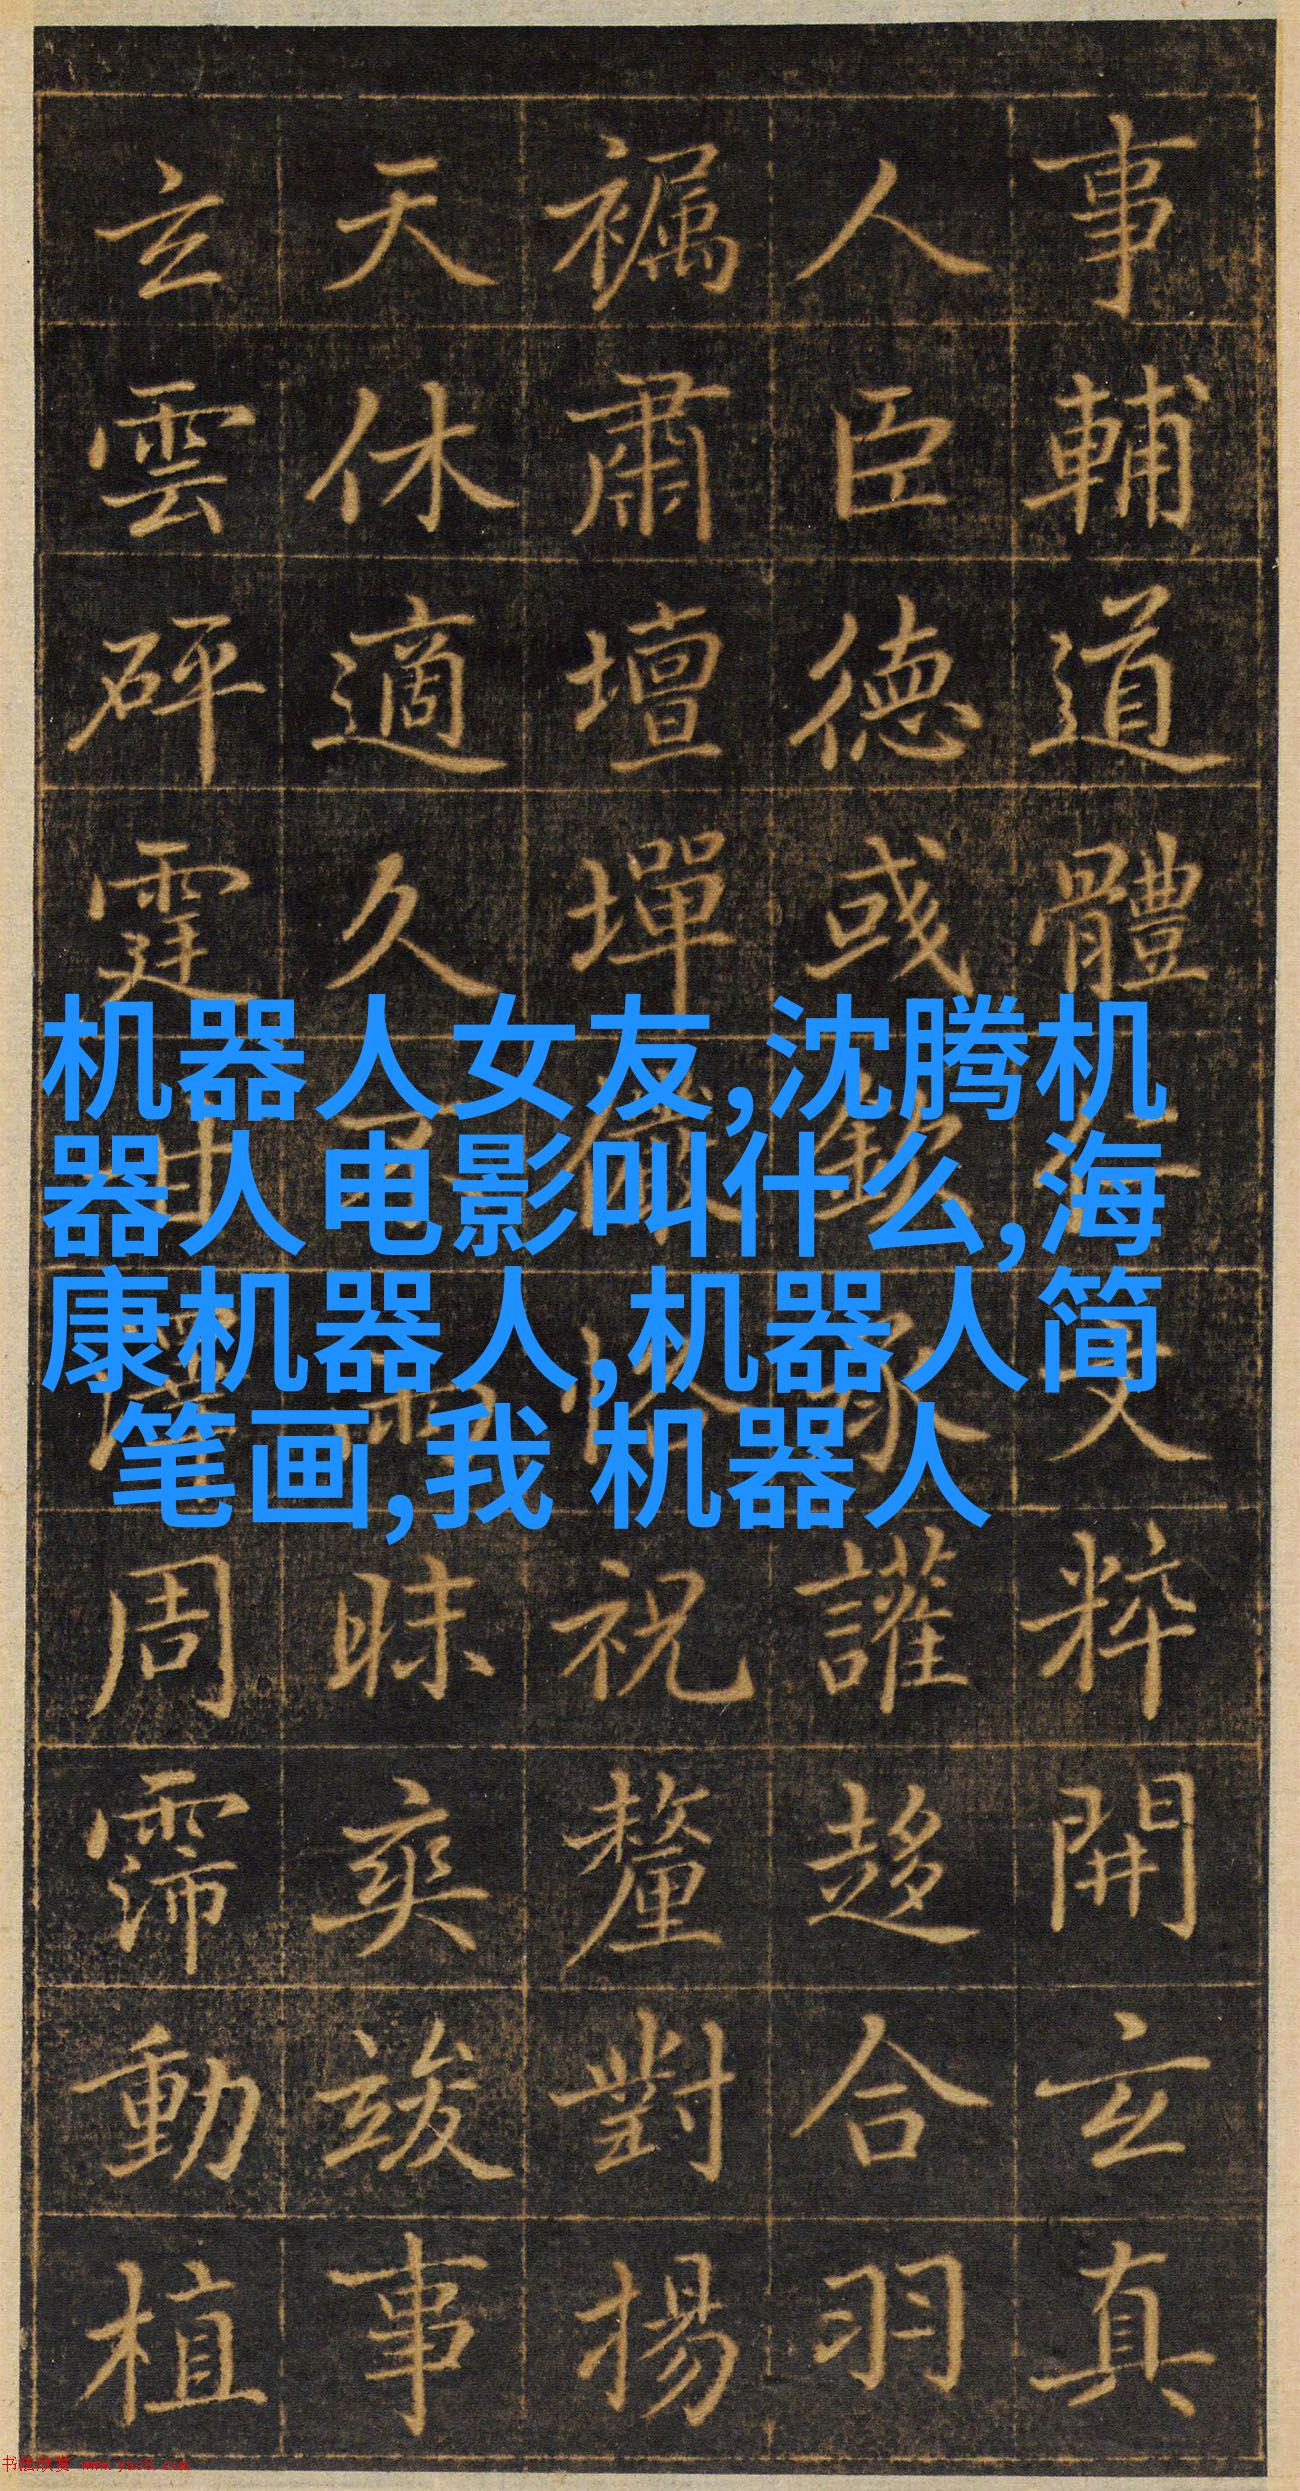 事輔道體文粹開玄真
人臣德或欽讙趍合羽
肅壇墠恪祝釐對揚
天休適久雨昧爽竣事
玄雲砰霆甘澤周霈動植
机器人女友,沈腾机
器人电影叫什么,海
康机器人,机器人简
笔画,我 机器人
书法欣赏 www.yac8.com